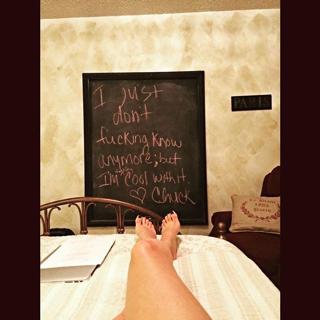 I just
don't
fucking know
anymore; but
I'm cool with it
♡ Chuck
PARIS